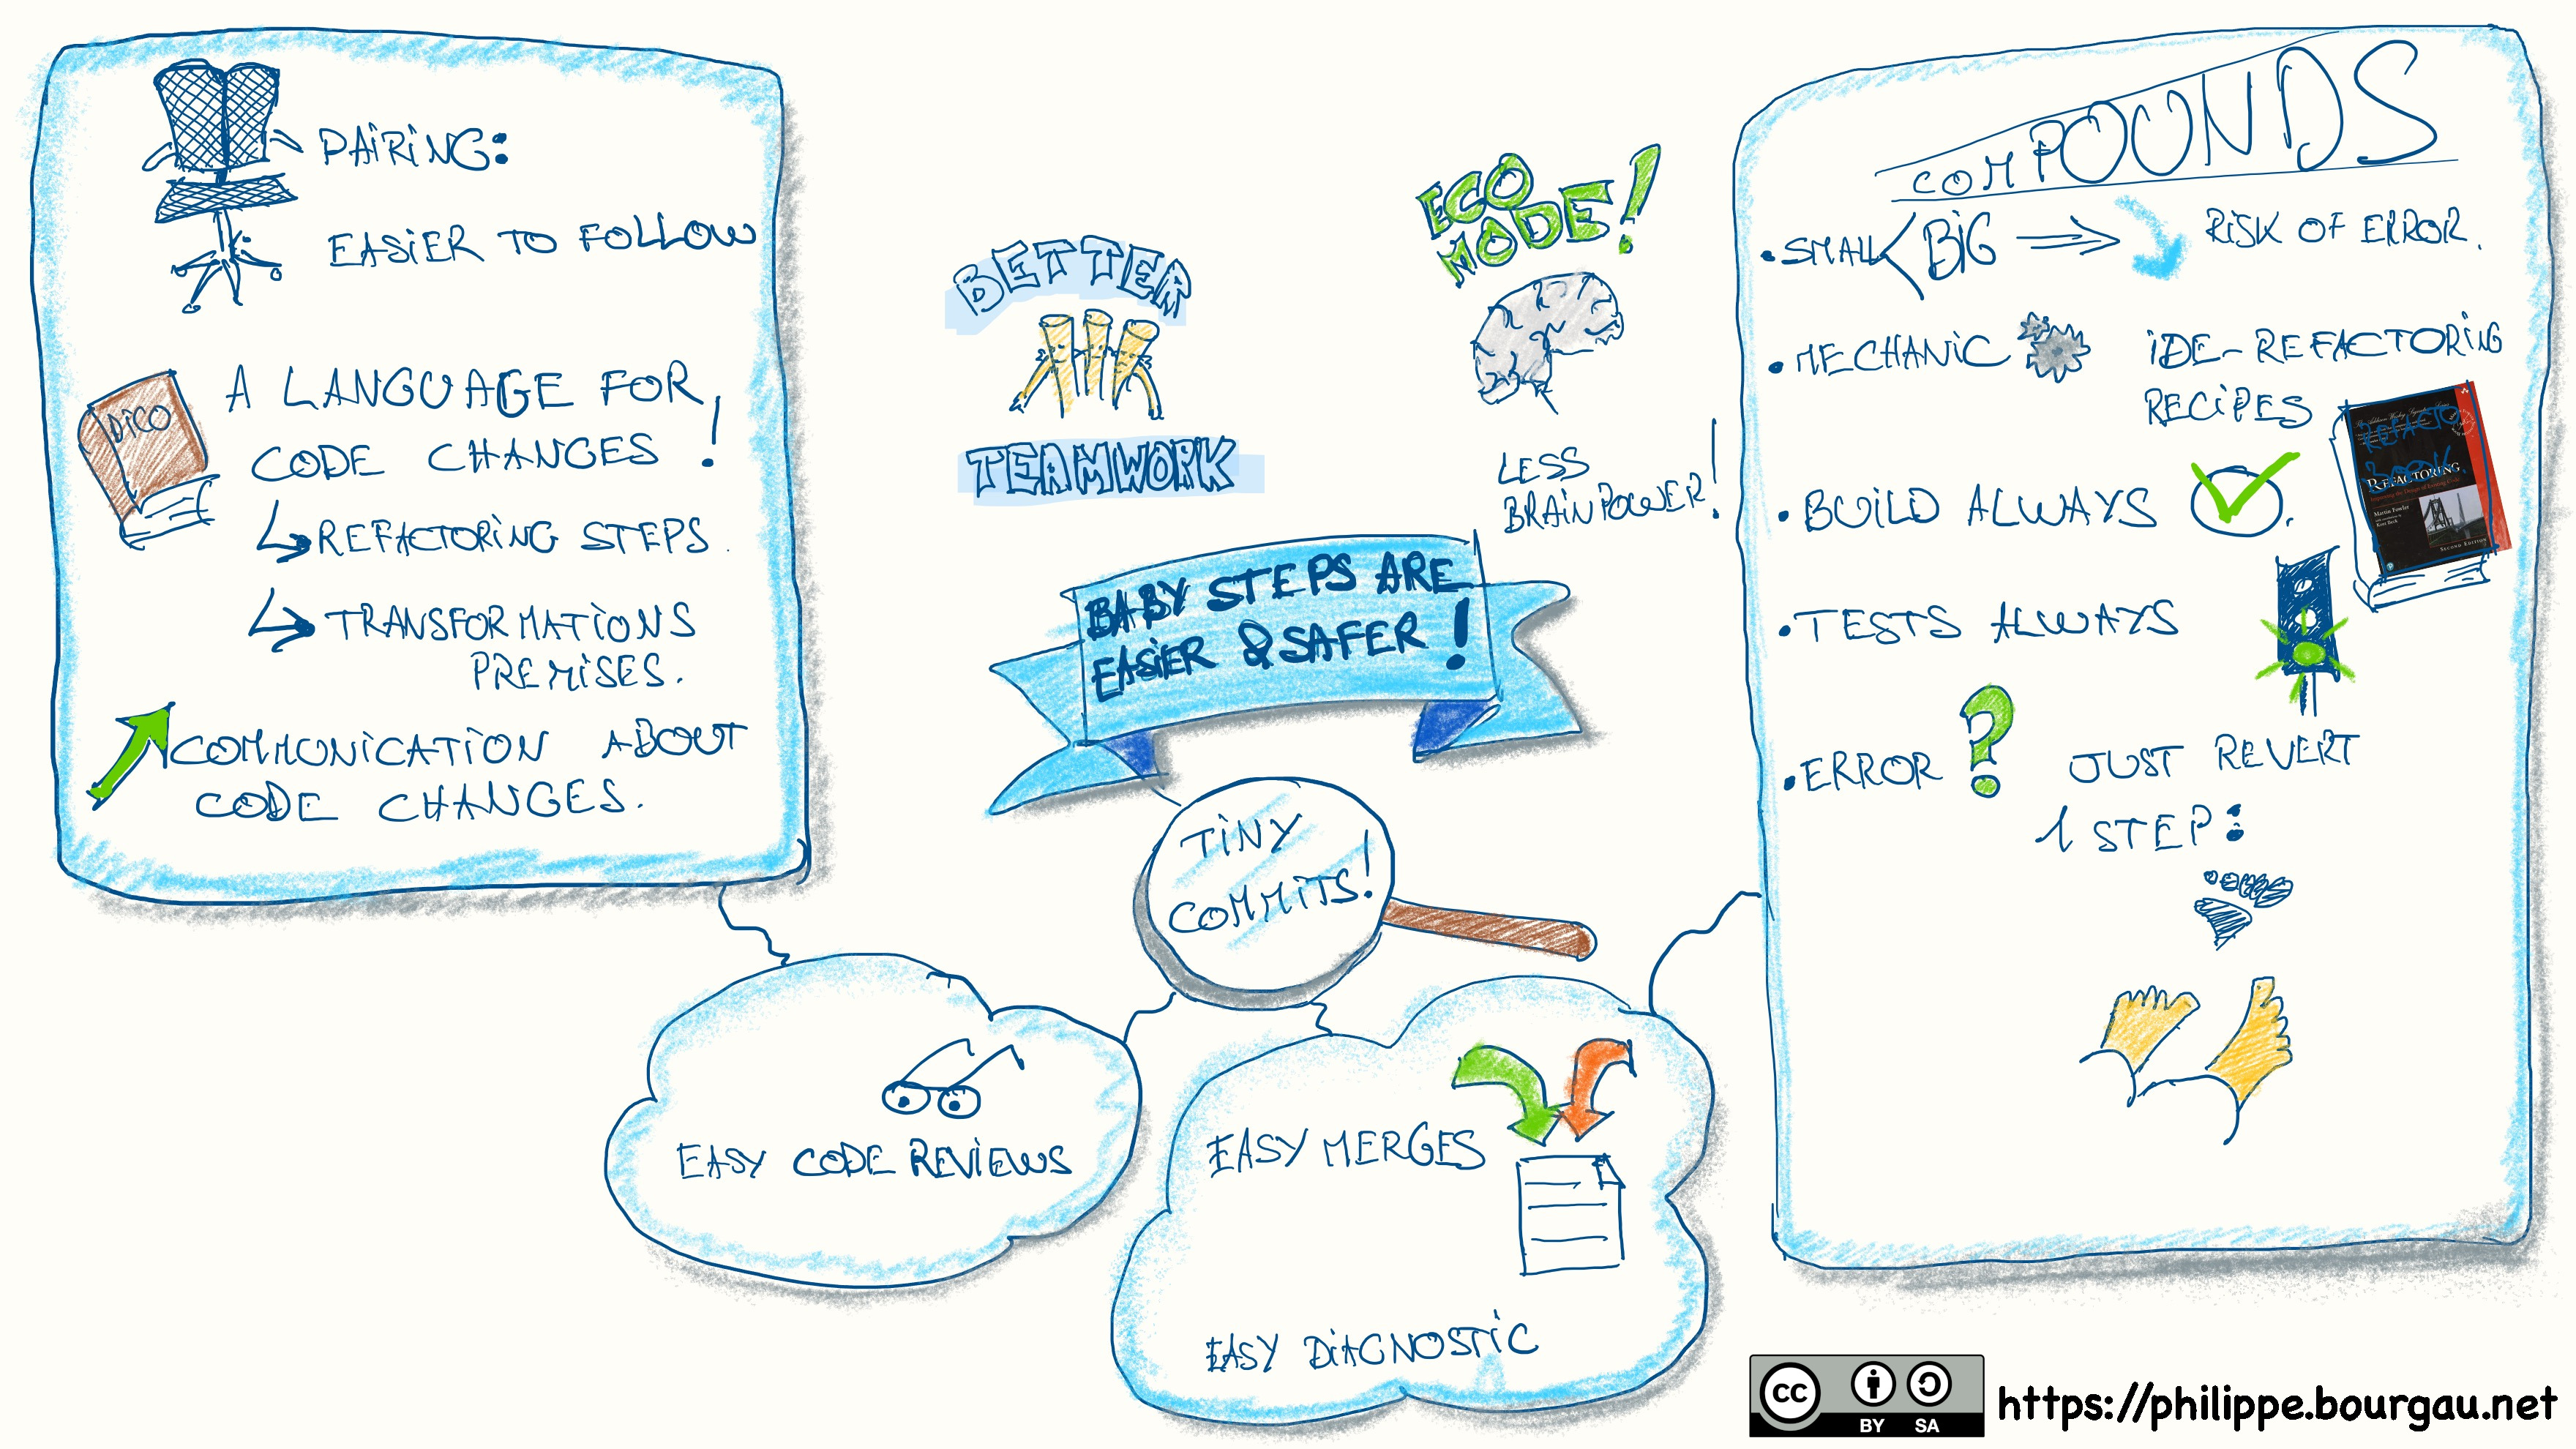 PAIRING:
EASIER TO FOLLOW
DICO
A LANGUAGE FOR
CODE CHANGES !
REFACTORING STEPS.
TRANSFORMATIONS
PREMISES.
COMMUNICATION ABOUT
CODE CHANGES.
BETTER
TEAMWORK
ECO
MODE!
LESS
BRAIN POWER!
BABY STEPS ARE
EASIER & SAFER !
TINY
COMMITS!
EASY CODE REVIEWS
EASY MERGES
EASY DIAGNOSTIC
COMPOUNDS
• SMALL < BIG ⇒ RISK OF ERROR.
• MECHANIC IDE-REFACTORING
RECIPES
REFACTO
BOOK
REFACTORING
Martin Fowler
Kent Beck
SECOND EDITION
• BUILD ALWAYS
• TESTS ALWAYS
• ERROR ? JUST REVERT
1 STEP:
CC BY SA
https://philippe.bourgau.net